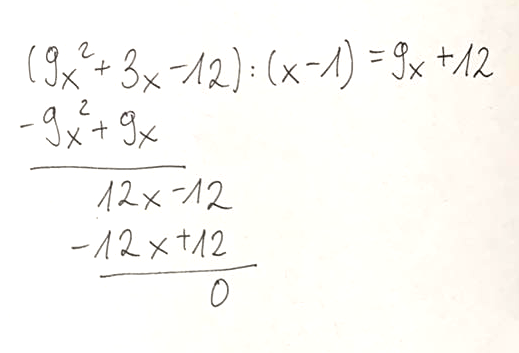 (9x²+3x-12):(x-1)=9x+12
-9x²+9x
12x-12
-12x+12
0